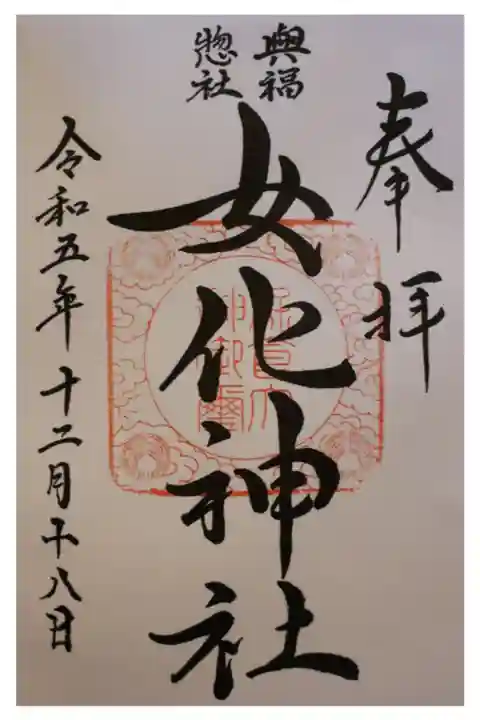 奉拝
與福
惣社
女化神社
令和五年十二月十八日